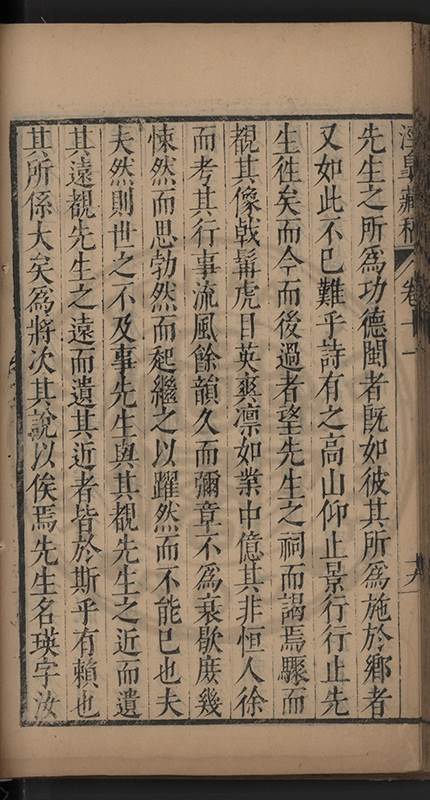 涇臯藏稿 卷十一 十八
先生之所爲功德閩者既如彼其所爲施於鄉者
又如此不已難乎詩有之高山仰止景行行止先
生徃矣而今而後過者望先生之祠而謁焉驟而
覩其像戟髯虎目英爽凛如業中億其非恒人徐
而考其行事流風餘韻久而彌章不爲衰歇庻幾
悚然而思勃然而起繼之以躍然而不能已也夫
夫然則世之不及事先生與其覩先生之近而遺
其遠覩先生之遠而遺其近者皆於斯乎有賴也
其所係大矣爲將次其說以俟焉先生名瑛字汝